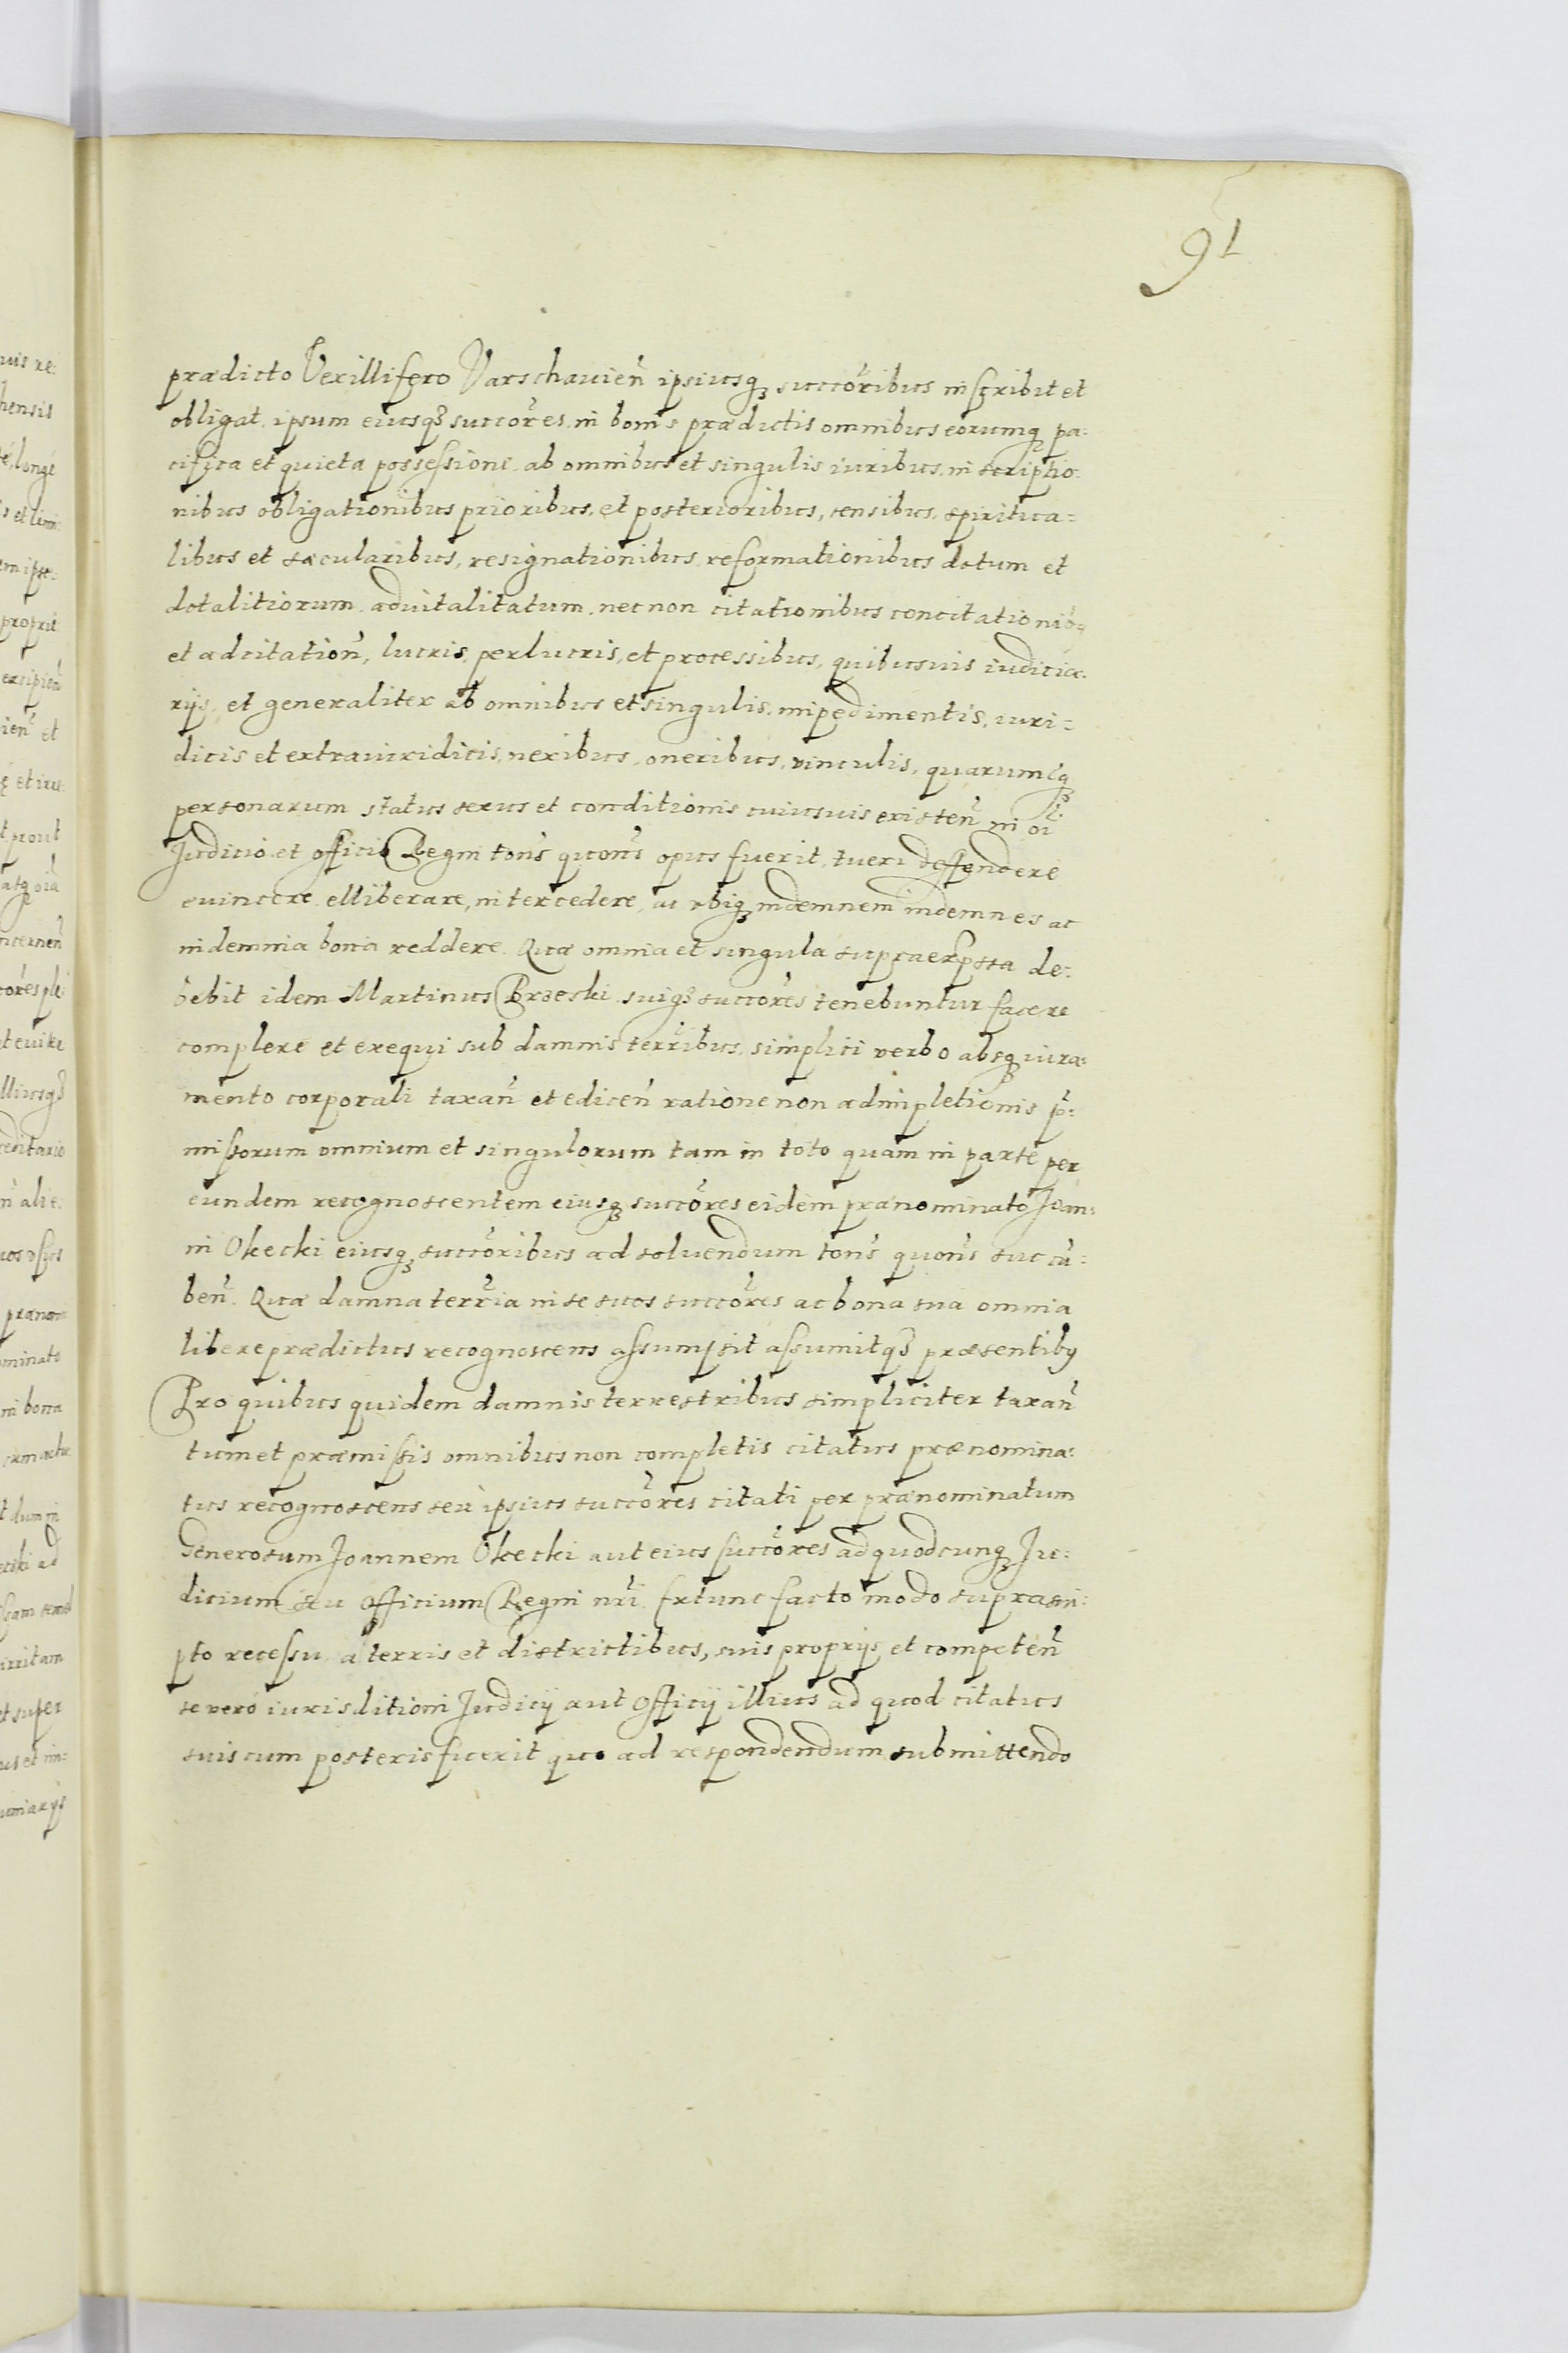 91
prædicto Vexillifero Varschavień ipsiusq₃ succōribus inscribit et
obligat. ipsum eiusq₃ succōres in bonis prædictis omnibus eorumq₃ pa=
cifica et quieta possessione. ab omnibus et singulis iuribus. inscriptio=
nibus obligationibus prioribus. et posterioribus, censibus. spiritua=
libus et sæcularibus, resignationibus reformationibus dotum et
dotalitiorum. advitalitatum. nec non citationibus concitationib₉
et adcitationń, lucris, perlucris, et processibus, quibusuis iudicia=
rijs, et generaliter ab omnibus et singulis. impedimentis, iuri=
dicis et extraiuridicis, nexibus, oneribus, vinculis, quarumq₃
personarum status sexus et conditionis cuiusuis existeń in oī
Judicio et officio Regni tońs quońs opus fuerit, tueri deffendere
evincere. elliberare, intercedere, ac vbiq₃ indemnem indemnes ac
indemnia bona reddere. Quæ omnia et singula supraexpssa de=
bebit idem Martinus Brzeski suiq₃ succōres tenebuntur facere
complere et exequi sub damnis terribus, simplici verbo absq₃ iura=
mento corporali taxań et ediceń ratione non adimpletionis p̄=
missorum omnium et singulorum tam in toto quam in parte per
eundem recognoscentem eiusq₃ succōres eidem prænominato Joan=
ni Okecki eiusq₃ succōribus ad soluendum tońs quońs succū=
beń. Quæ damna terria in se suos succōres ac bona sua omnia
libere prædictus recognoscens assumpsit assumitq₃ præsentib₉
Pro quibus quidem damnis terrestribus simpliciter taxań
tum et præmissis omnibus non completis citatus prænomina=
tus recognoscens seu ipsius succōres citati per prænominatum
Generosum Joannem Okecki aut eius succōres ad quodcunq₃ Ju=
dicium seu Officium Regni nrī. Extunc facto modo suprascri=
pto recessu a terris et districtibus, suis proprijs et competeń
se vero iurisditioni Judicij aut Officij illius ad quod citatus
suis cum posteris fuerit quo ad respondendum submittendo